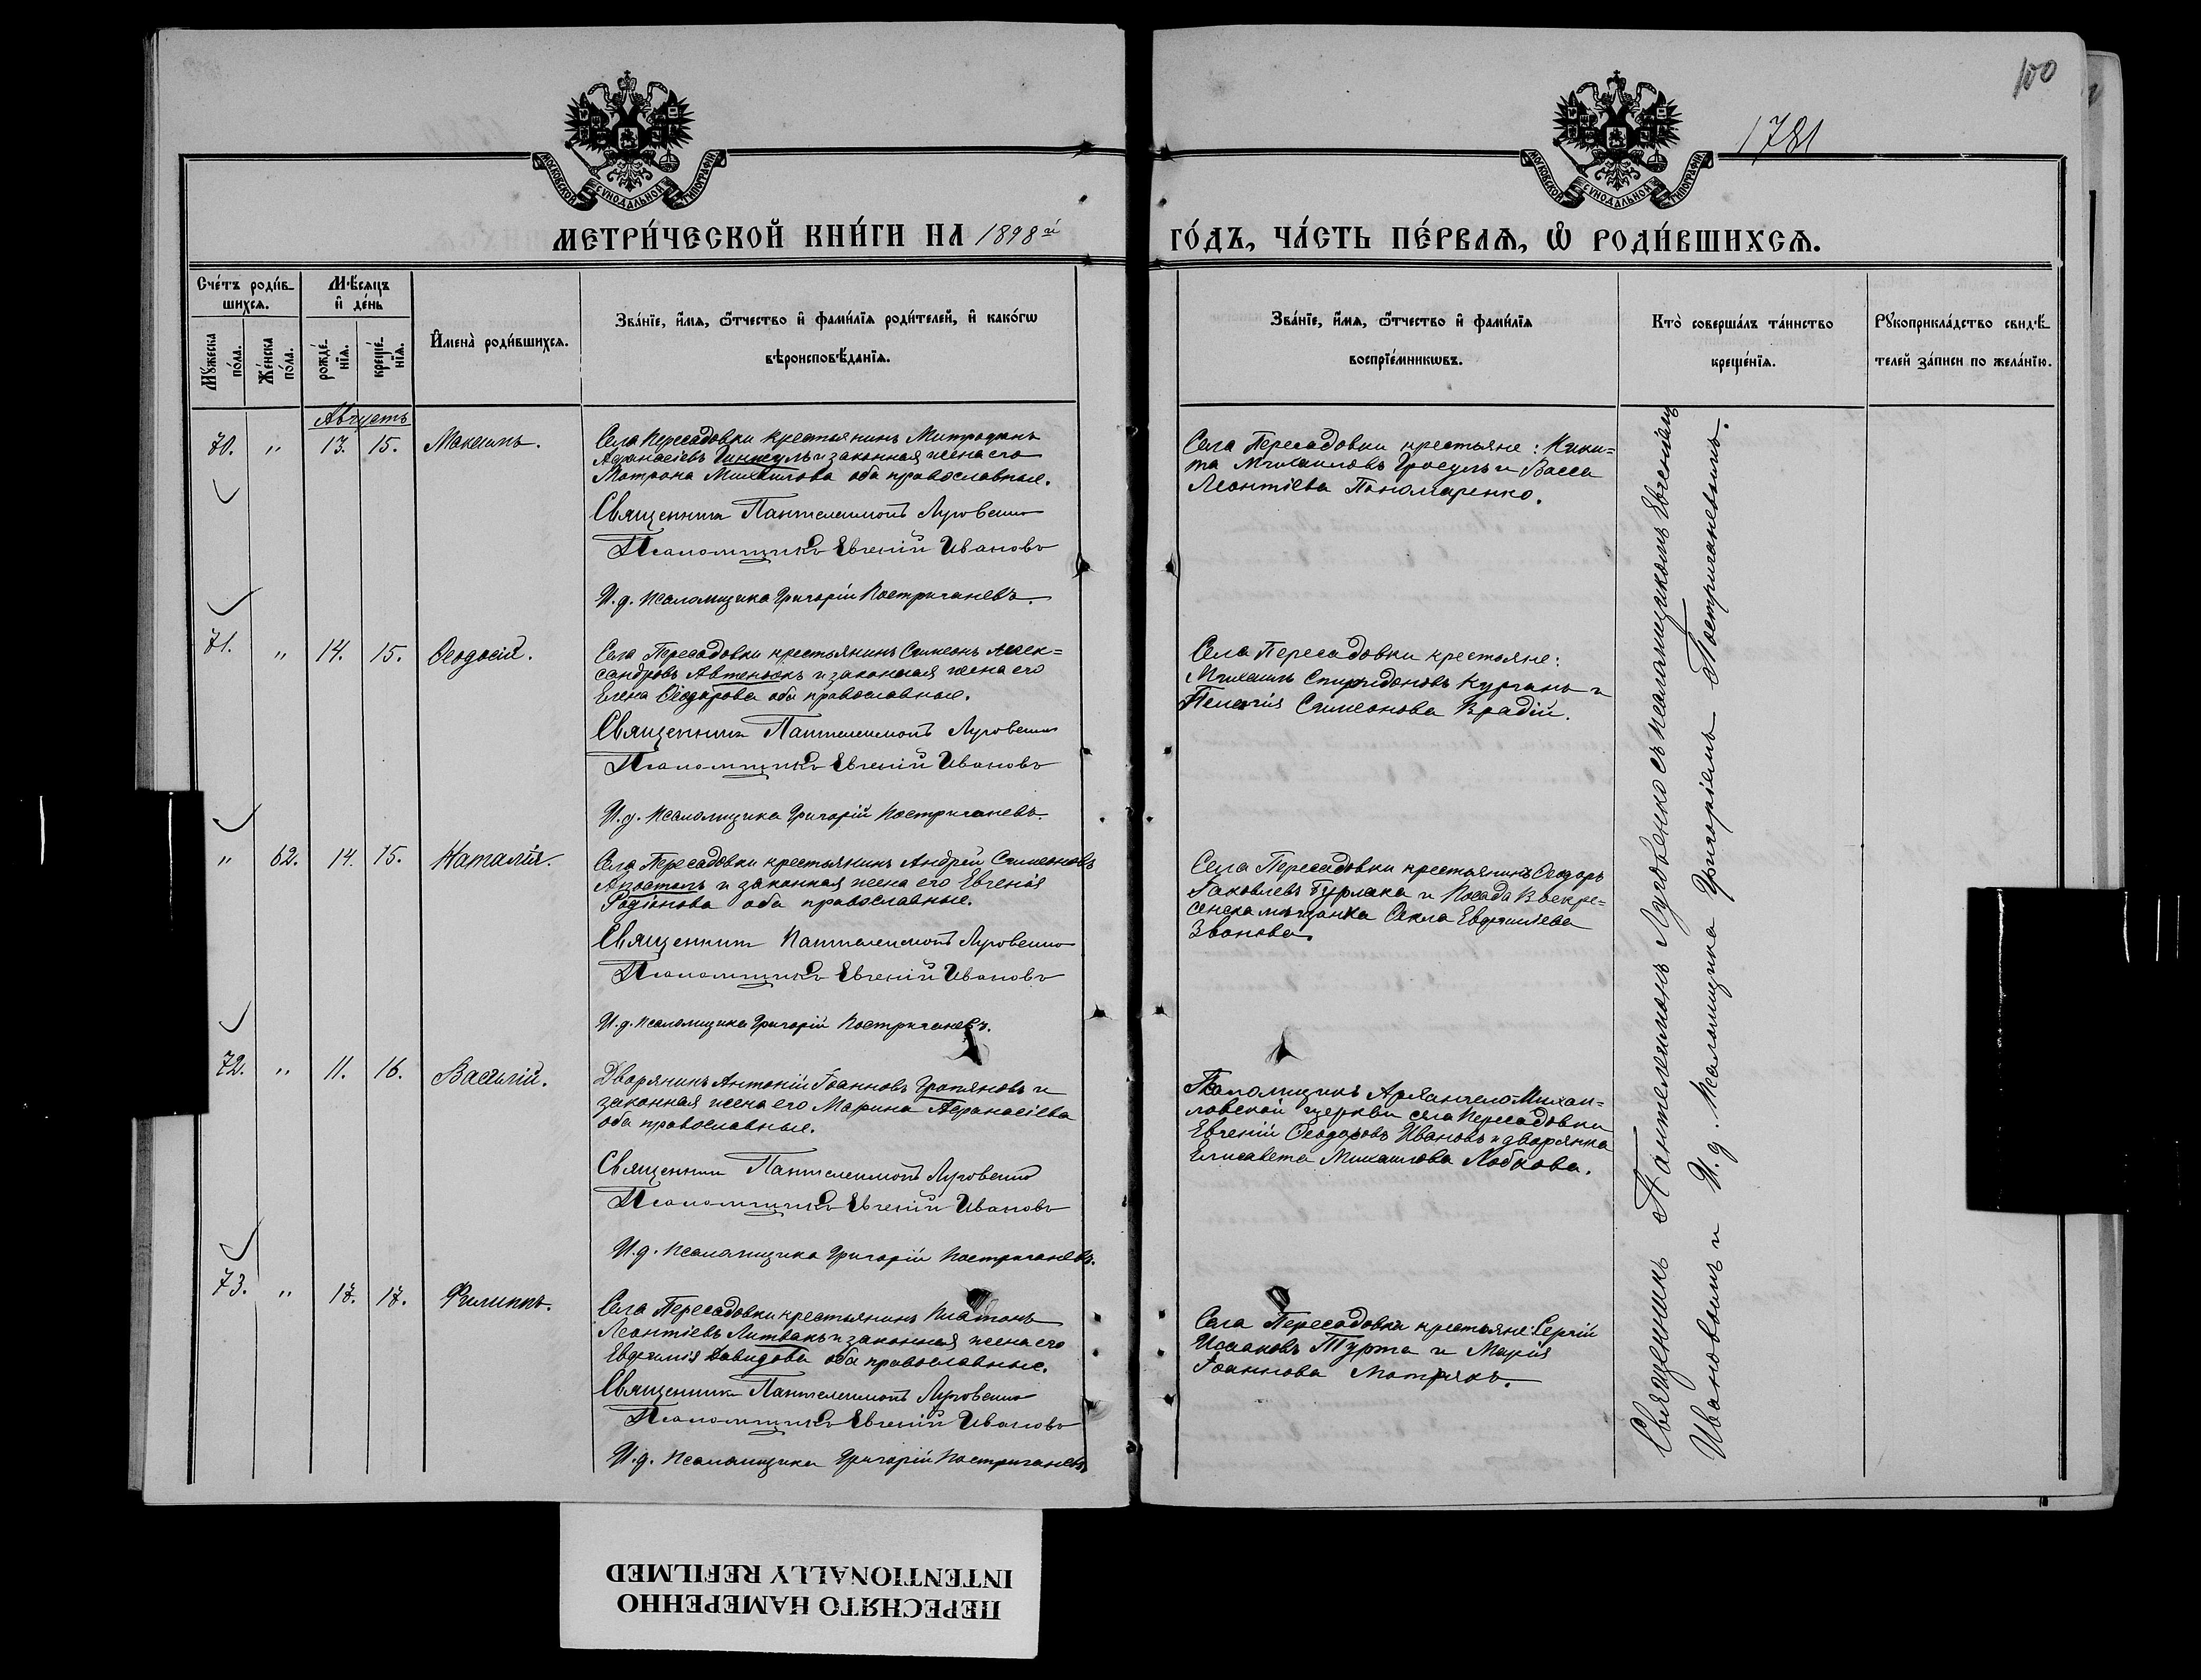 100
1781
МОСКОВСКОЙ СУНОДАЛЬНОЙ ТИПОГРАФІИ
МОСКОВСКОЙ СУНОДАЛЬНОЙ ТИПОГРАФІИ
МЕТРИ́ЧЕСКОЙ КНИ́ГИ НА 1898й
ГО́ДЪ, ЧА́СТЬ ПЕ́РВАѦ, Ѽ РОДИ́ВШИХСѦ.
Сче́тъ роди́вшихсѧ.
Мꙋ́жеска по́ла.
Же́нска по́ла.
Мѣ́сѧцъ и҆ де́нь
рожде́нїѧ.
креще́нїѧ.
И҆мена̀ роди́вшихсѧ.
Зва́нїе, и҆́мѧ, ѻ҆́тчество и҆ фами́лїѧ роди́телей, и҆ како́гѡ
вѣроисповѣ́данїѧ.
Зва́нїе, и҆́мѧ, ѻ҆́тчество и҆ фами́лїѧ
воспрїе́мникѡвъ.
Кто̀ соверша́лъ та́инство
креще́нїѧ.
Рꙋкоприкла́дство свидѣ́телей за́писи по жела́нїю.
Августъ
70. " 13. 15. Максимъ.
Села Пересадовки крестьянинъ Митрофанъ
Афанасіевъ и законная жена его
Матрона Михаилова оба православные.
Священникъ Пантелеимонъ Луговенко
Псаломщикъ Евгеній Ивановъ
И. д. псаломщика Григорій Постригачевъ.
Села Пересадовки крестьяне: Ники=
та Михаиловъ Гросулъ и Васса
Леонтіева Пономаренко.
71. " 14. 15. Ѳеодосій.
Села Пересадовки крестьянинъ Симеонъ Алек=
сандровъ Автенюкъ и законная жена его
Елена Ѳеодорова оба православные.
Священникъ Пантелеимонъ Луговенко
Псаломщикъ Евгеній Ивановъ
И. д. псаломщика Григорій Постригачевъ.
Села Пересадовки крестьяне:
Михаилъ Спиридоновъ Курганъ и
Пелагія Симеонова Врадій.
" 62. 14. 15. Наталія.
Села Пересадовки крестьянинъ Андрей Симеоновъ
Апостолъ и законная жена его Евгенія
Родіонова оба православные.
Священникъ Пантелеимонъ Луговенко
Псаломщикъ Евгеній Ивановъ
И. д. псаломщика Григорій Постригачевъ.
Села Пересадовки крестьянинъ Ѳеодоръ
Іаковлевъ Бурлака и посада Воскре=
сенска мѣщанка Ѳекла Евфиміева
Званова.
72. " 11. 16. Василій.
Дворянинъ Антоній Іоанновъ и
законная жена его Марина Афанасіева
оба православные.
Священникъ Пантелеимонъ Луговенко
Псаломщикъ Евгеній Ивановъ
И. д. псаломщика Григорій Постригачевъ.
Псаломщикъ Архангело-Михаи=
ловской церкви села Пересадовки
Евгеній Ѳеодоровъ Ивановъ и дворянка
Елисавета Михаилова Лобкова.
73. " 17. 17. Филиппъ.
Села Пересадовки крестьянинъ Платонъ
Леонтіевъ Литвакъ и законная жена его
Евфимія Давидова оба православные.
Священникъ Пантелеимонъ Луговенко
Псаломщикъ Евгеній Ивановъ
И. д. псаломщика Григорій Постригачевъ
Села Пересадовки крестьяне: Сергій
Исааковъ Турта и Марія
Іоаннова
Священникъ Пантелеимонъ Луговенко съ псаломщикомъ Евгеніемъ
Ивановымъ и И. д. псаломщика Григоріемъ Постригачевымъ.
ПЕРЕСНЯТО НАМЕРЕННО
INTENTIONALLY REFILMED